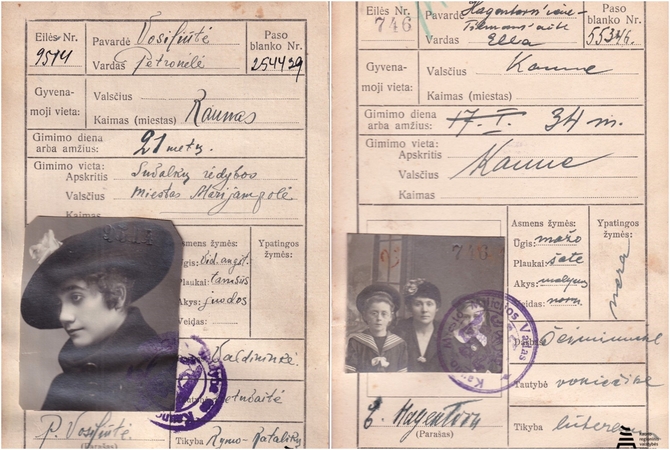 Eilės Nr.
9511
Pavardė Vosiliūtė
Vardas Petronelė
Paso
blanko Nr.
254429
Gyvena-
moji vieta:
Valsčius
Kaimas (miestas) Kaunas
Gimimo diena
arba amžius: 21 metų.
Gimimo vieta:
Apskritis Suvalkų rėdybos
Valsčius miestas Marijampolė
Kaimas
Asmens žymės:
Ūgis: vid. augšt.
Plaukai: tamsūs
Akys: juodos
Veidas:
Ypatingos
žymės:
P. Vosiliūtė
(Parašas)
Tikyba Rymo-Katalikų
Eilės Nr.
746
Pavardė
Vardas Ella
Paso
blanko Nr.
Gyvena-
moji vieta:
Valsčius Kaune
Kaimas (miestas)
Gimimo diena
arba amžius: 17. I. 34 m.
Gimimo vieta:
Apskritis
Valsčius Kaune
Kaimas
Asmens žymės:
Ūgis: mažo
Plaukai: šatė
Akys: mėlynos
Veidas: norm.
Ypatingos
žymės:
nėra
746
Šeimininkė
Tautybė vokietikė
E. Hagentorn
(Parašas)
Tikyba